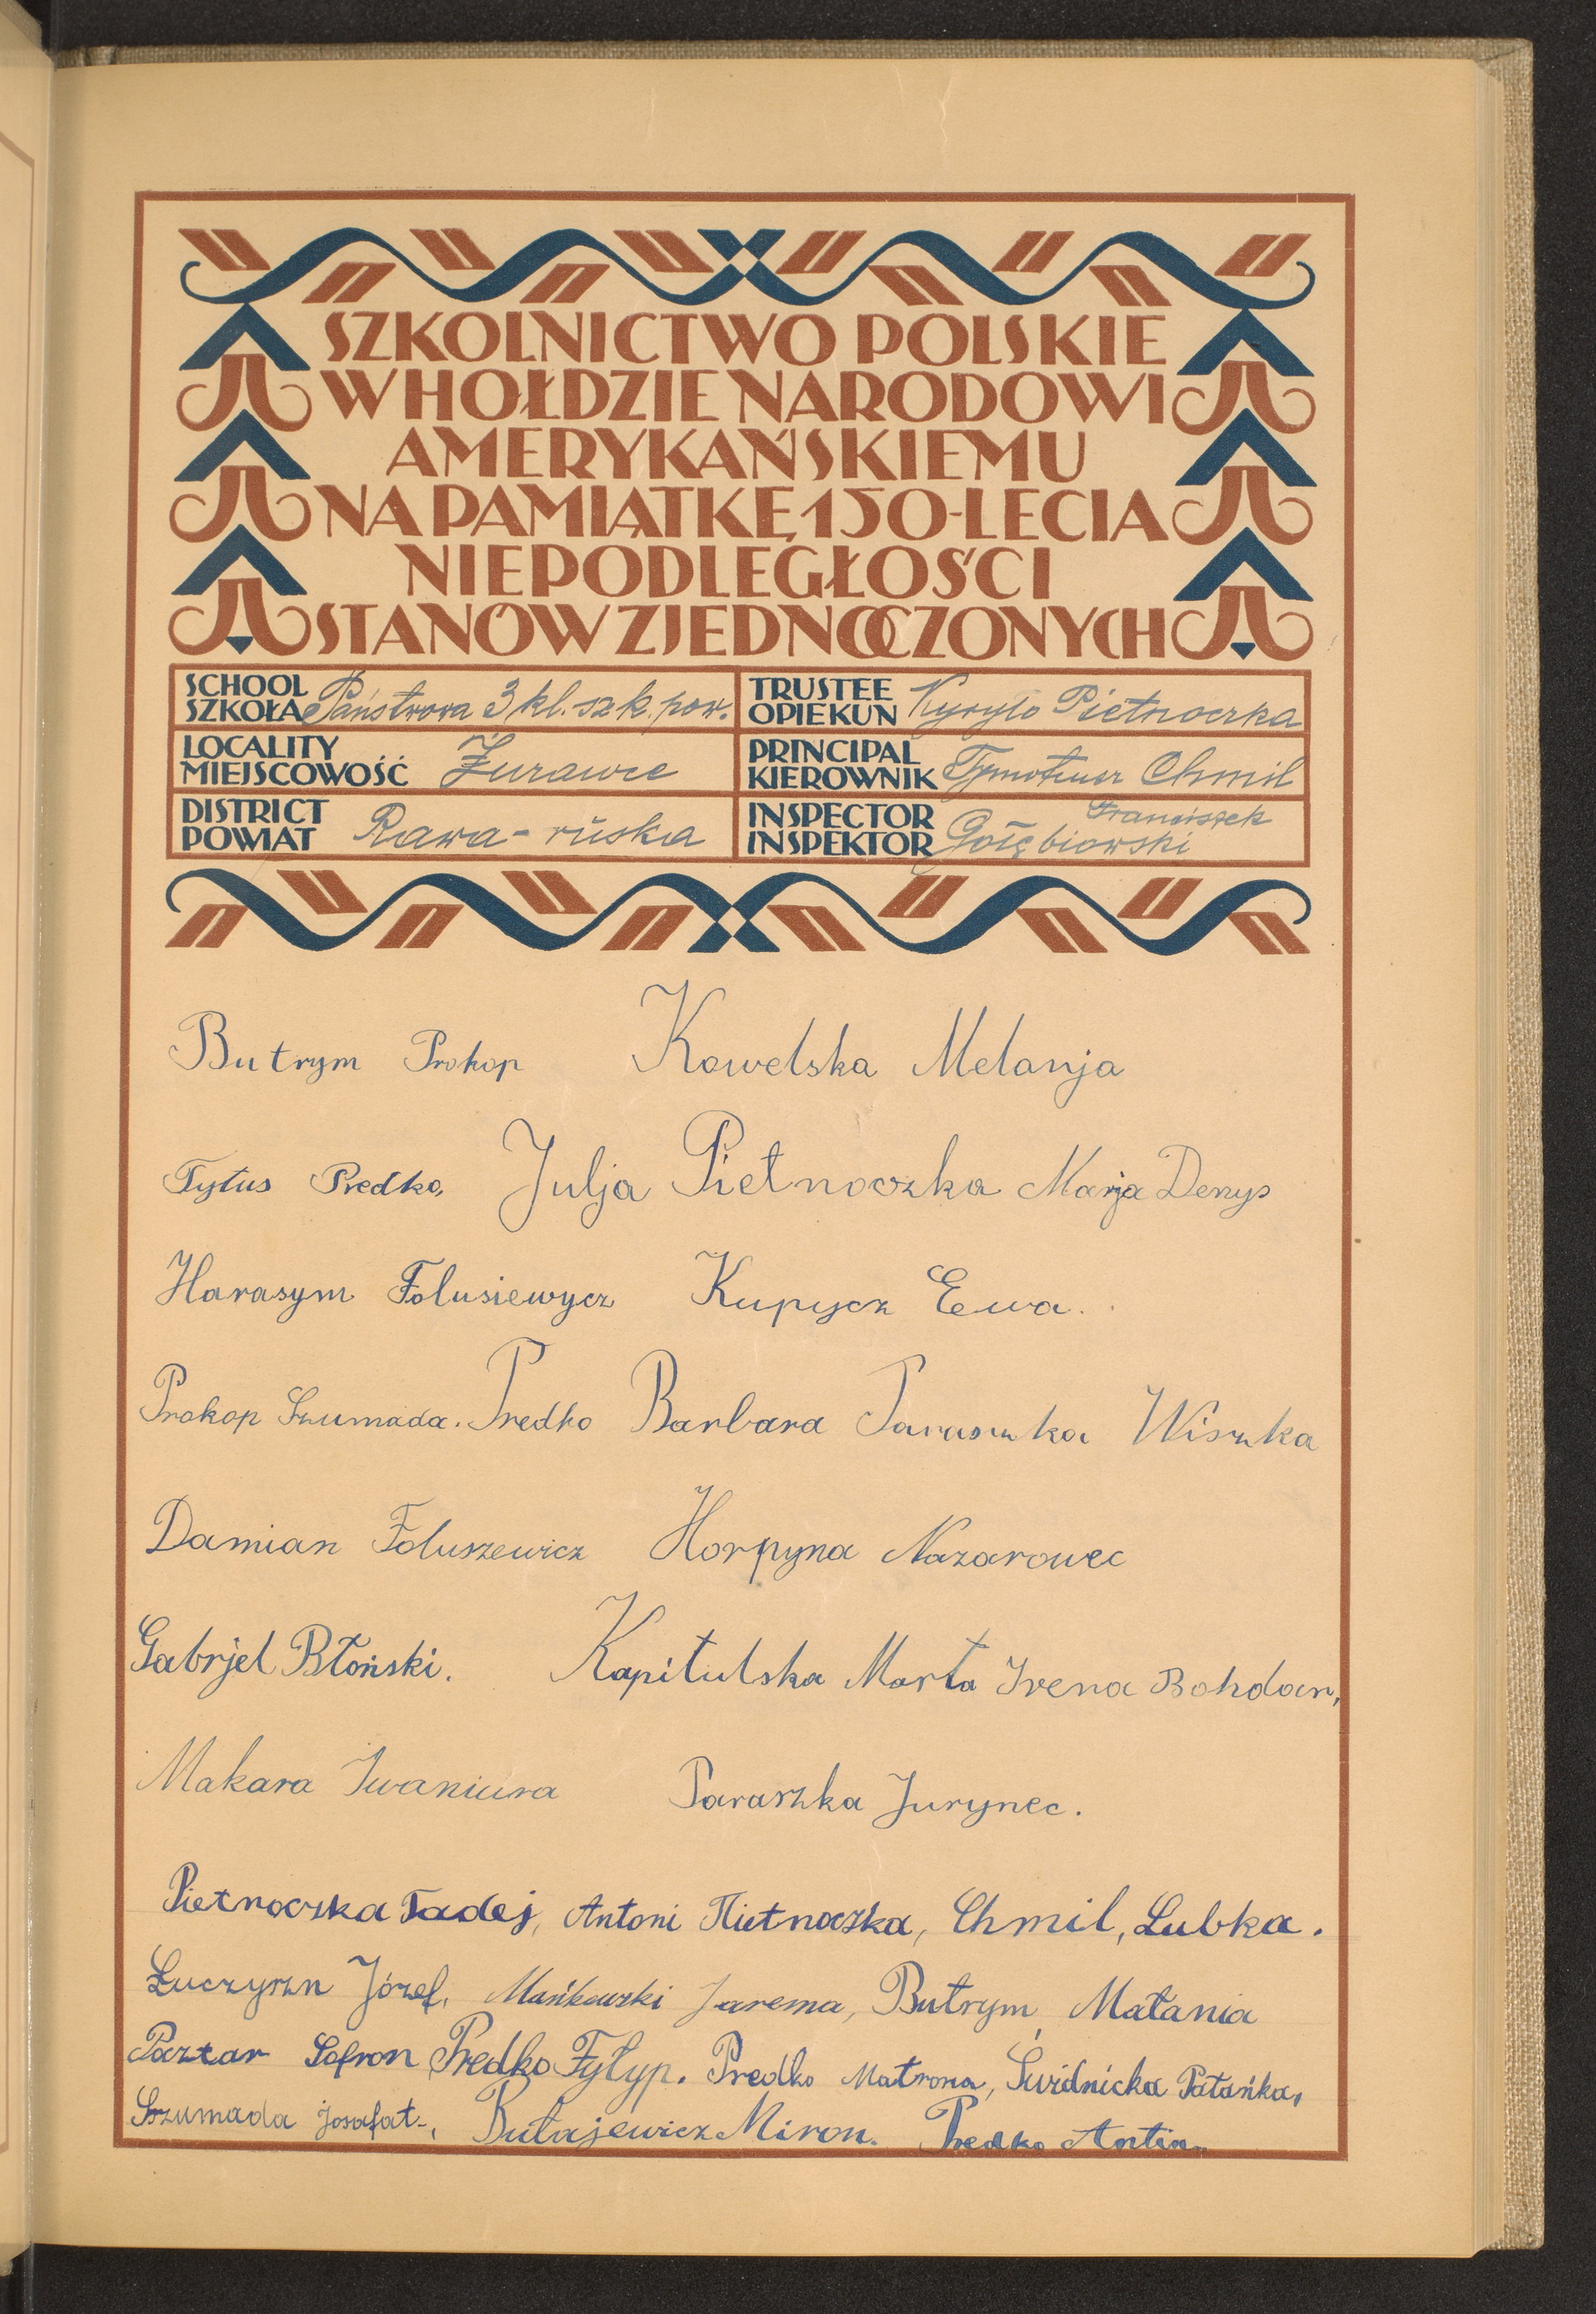 SZKOLNICTWO POLSKIE
W HOŁDZIE NARODOWI
AMERYKAŃSKIEMU
NA PAMIĄTKĘ 150-LECIA
NIEPODLEGŁOŚCI
STANÓW ZJEDNOCZONYCH
SCHOOL
SZKOŁA Państwowa 3 kl. szk. pow.
TRUSTEE
OPIEKUN Kyryło Pietnoczka
LOCALITY
MIEJSCOWOŚĆ Żurawce
PRINCIPAL
KIEROWNIK Tymoteusz Chmil
DISTRICT
POWIAT Rawa-ruska
INSPECTOR Franciszek
INSPEKTOR Gołębiowski
Butrym Prokop Kowelska Melanja
Tytus Predko, Julja Pietnoczka Marja Denys
Harasym Folusiewycz Kupycz Ewa.
Prokop Szumada. Predko Barbara Paraszka Wiszka
Damian Foluszewicz Horpyna Nazarowec
Gabrjel Błoński. Kapitulska Marta Irena Bohdan,
Makara Iwaniura Paraszka Jurynec.
Pietnoczka Tadej, Antoni Pietnoczka, Chmil, Lubka.
Łuczyszn Józef, Mańkowski Jarema, Butrym, Matania
Pasztar Sofron Predko Fyłyp. Predko Matrona, Świdnicka Patańka,
Szumada Josafat-, Butajewicz Miron. Predko